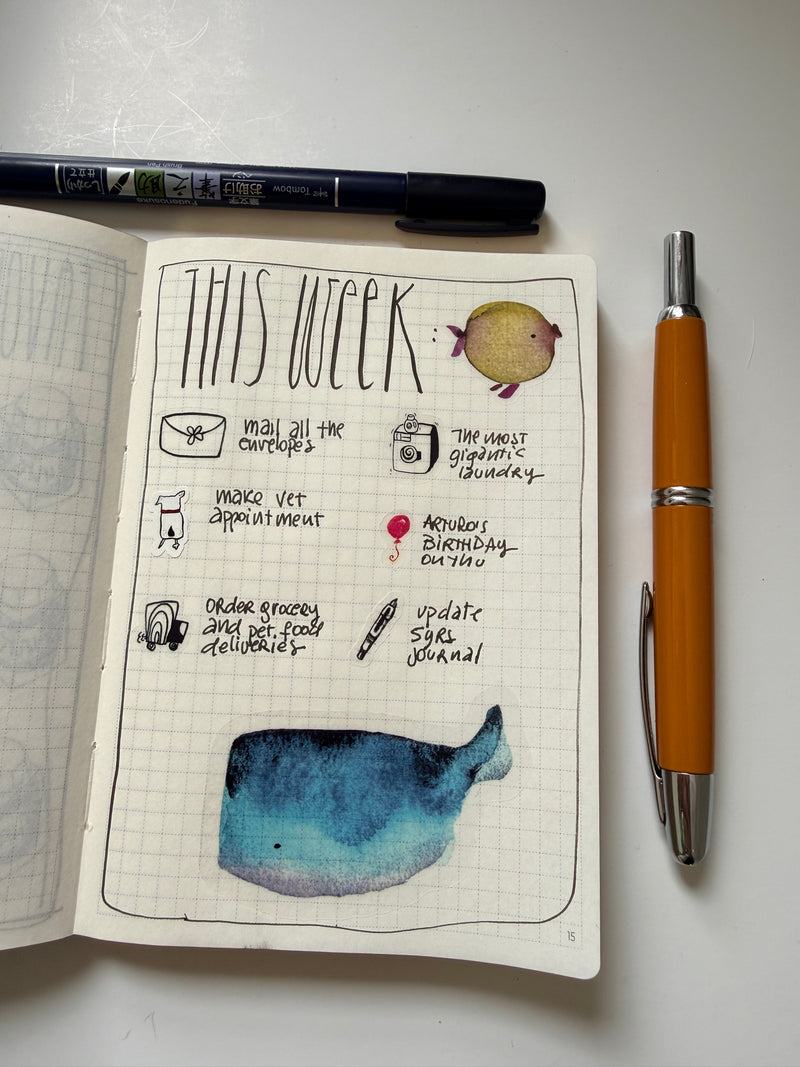 Brush Pen
Fudenosuke
Tombow
しっかり
仕立て
THIS WEEK:
mail all the
envelopes
The most
gigantic
laundry
make vet
appointment
ARTURO'S
BIRTHDAY
ON THU
ORDER grocery
and pet food
deliveries
update
5YRS
JOURNAL
15